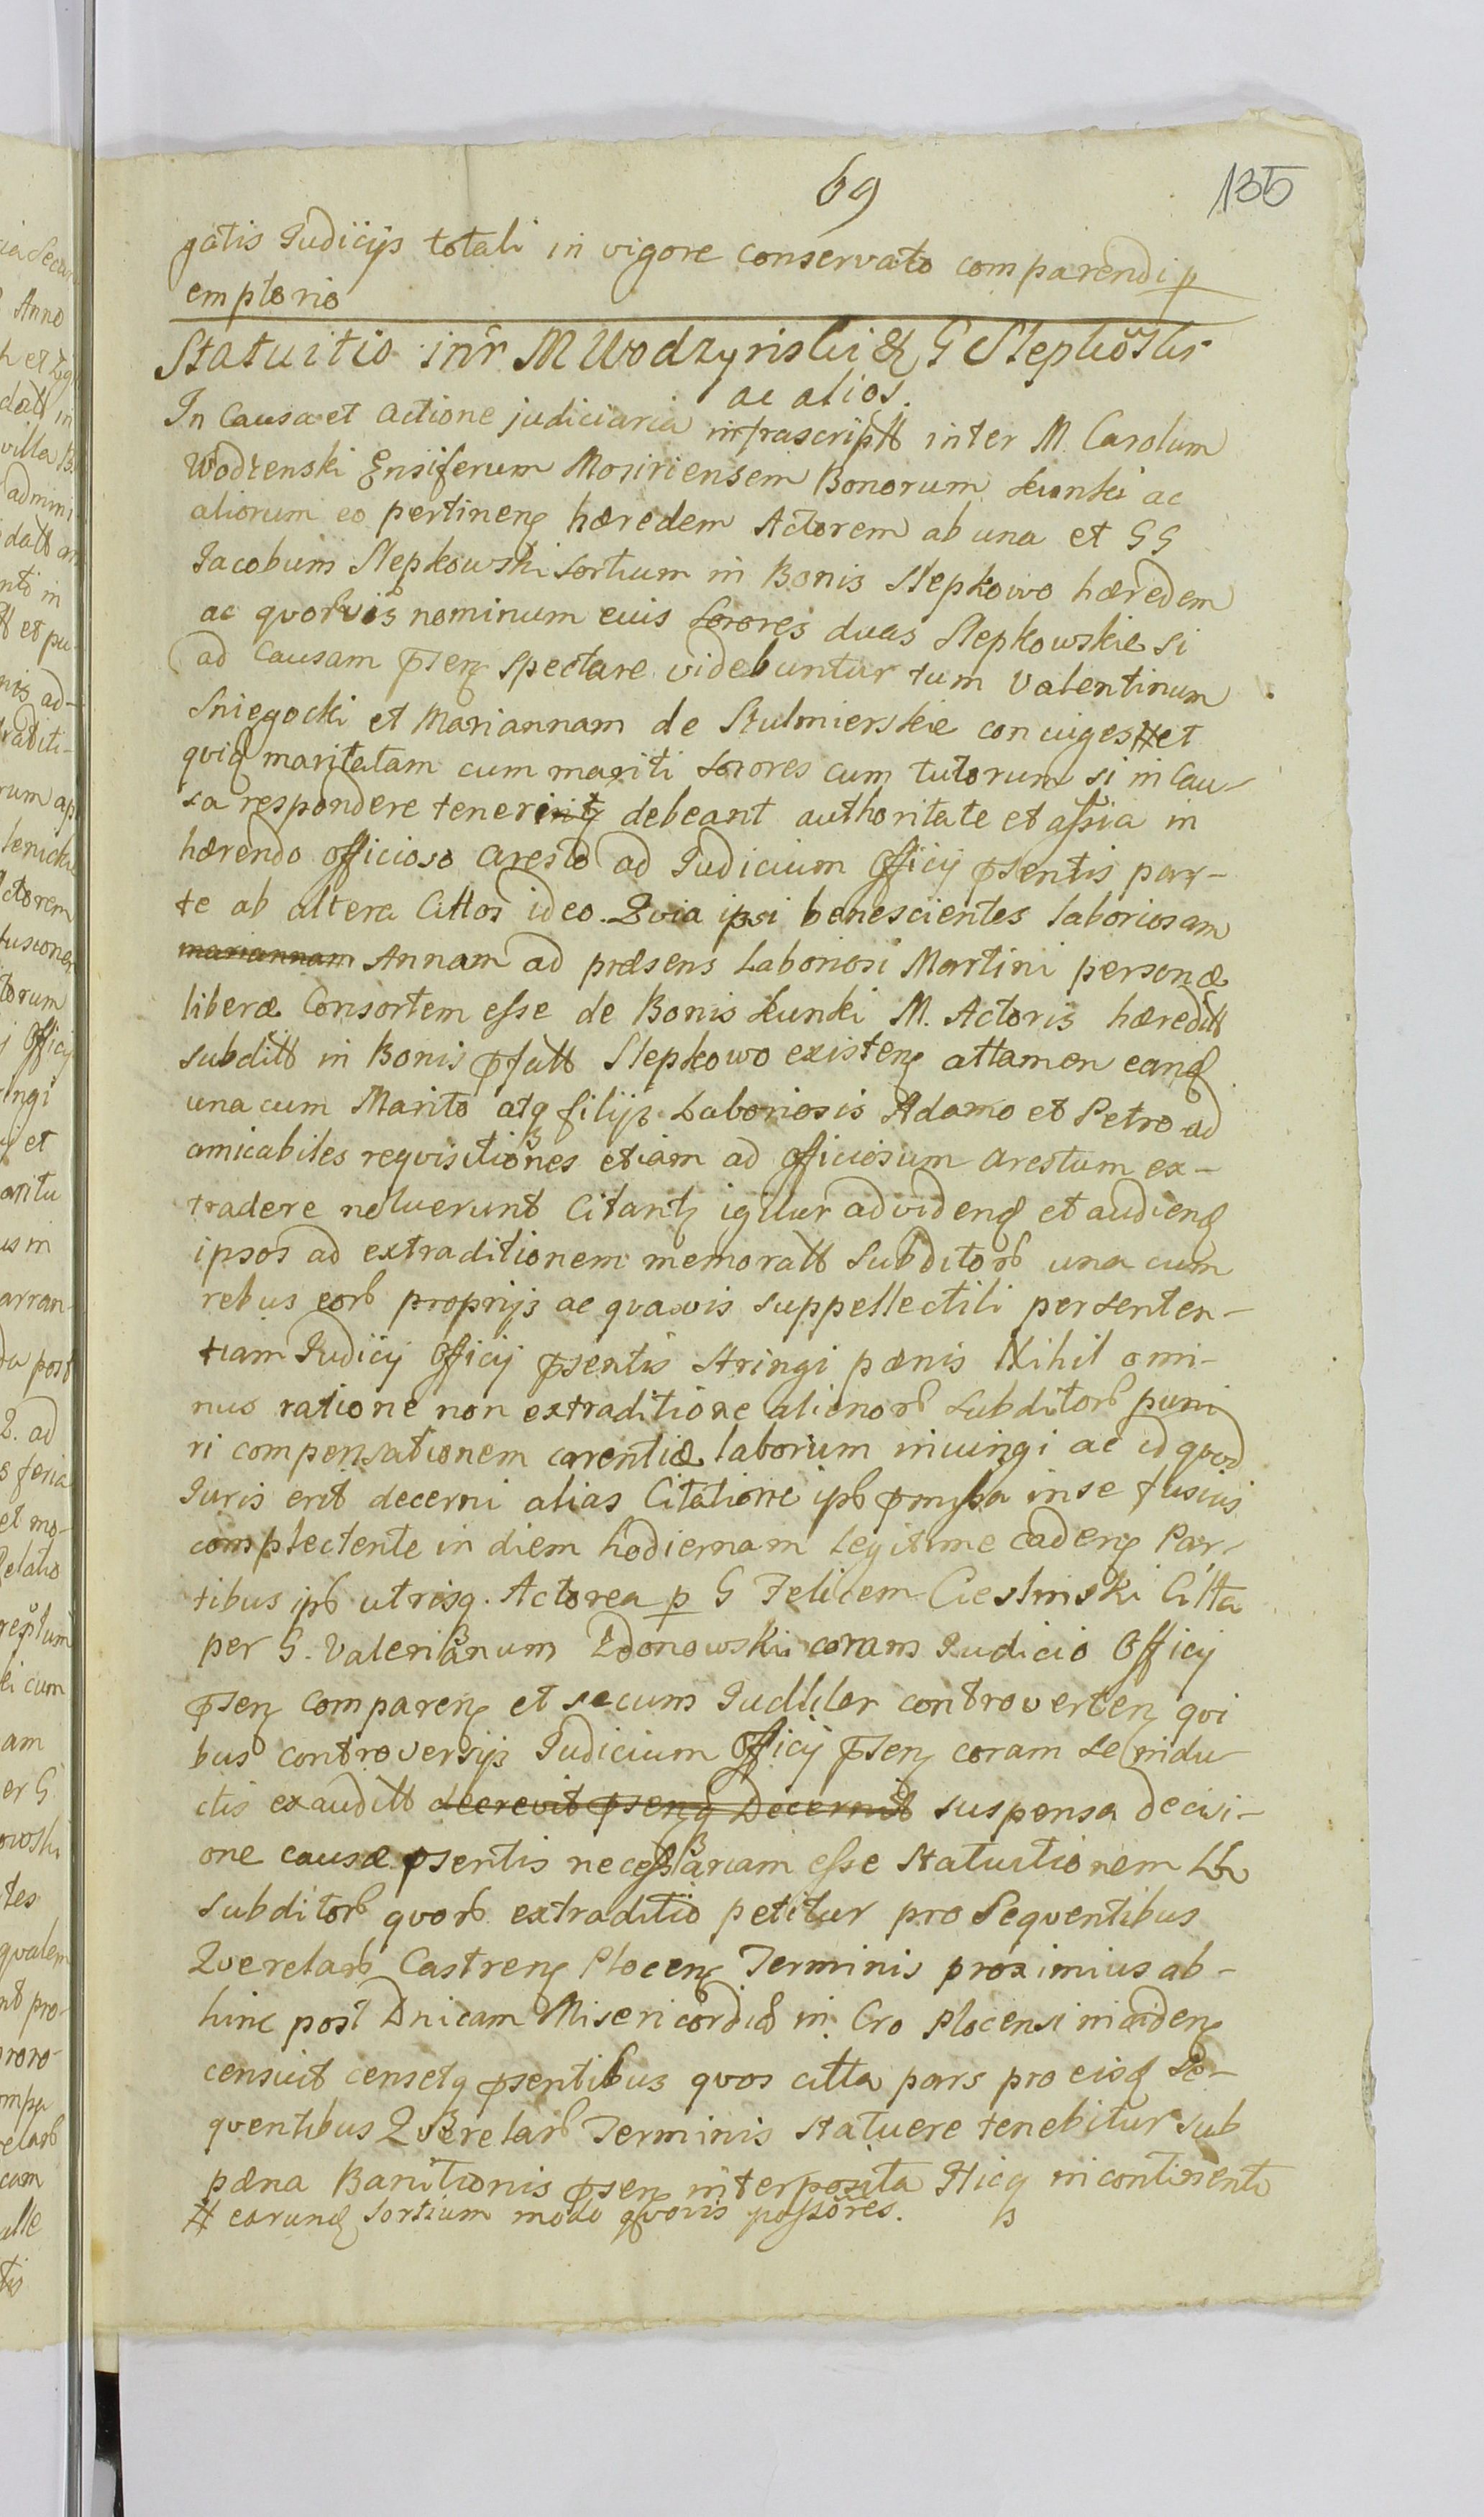 69
135
gatis Judicijs totali in vigore conservato comparendi p
emptorio
Statuitio inr̄ M Wodzynski & G Slepkōskis
ac alios.
In Causa et Actione judiciaria infrascriptt inter M. Carolum
Wodzenski Ensiferum Mosiriensem Bonorum Łunki ac
aliorum eo pertinenȝ hæredem Actorem ab una et GG
Jacobum Slepkowski sortium in Bonis Slepkowo hæredem
ac quorvis nominum eius Sorores duas Slepkowskie si
ad Causam p̄senȝ spectare videbuntur tum Valentinum
Sniegocki et Mariannam de Stulmierskie coniuges # et
quiq maritatam cum mariti Sorores cum tutorum si in Cau-
sa respondere tenerint debeant authoritate et assia in
hærendo officioso aresto ad Judicium Officij p̄sentis par-
te ab altera Cittos ideo. Quia ipsi benescientes laboriosam
mariannam Annam ad præsens Laboriosi Martini personæ
liberæ Consortem esse de Bonis Łunki M. Actoris hæreditt
subditt in Bonis p̄fatt Slepkowo existenȝ attamen eanq
una cum Marito atq filijs Laboriosis Adamo et Petro ad
amicabiles requisitiones etiam ad officiosum arestum ex-
tradere noluerunt Citantȝ igitur ad videnq et audienq
ipsos ad extraditionem memoratt Subditorb una cum
rebus eorb proprijs ac quavis suppellectili per senten-
tiam Judicij Officij p̄sentis stringi pænis Nihil omi-
nus ratione non extraditione alienorb subditorb puni
ri compensationem carentiæ laborum iniungi ac id quod
Juris erit decerni alias Citatione ipb p̄myssa in se fusius
complectente in diem hodiernam legitime cadenȝ Par-
tibus ipb utrisq. Actorea p G Felicem Ciesłinski Citta
per G. Valerianum Zdonowski coram Judicio Officij
p̄senȝ comparenȝ et secum Judltler controvertenȝ qui
bus controversijs Judicium Officij p̄senȝ coram se indu-
ctis exauditt decrevit p̄senq Decernit suspensa decisi-
one causæ p̄sentis necessariam esse statuitionem LL
subditorb quorb extraditio petitur pro Sequentibus
Querelarb Castrenȝ Plocenȝ Terminis proximius ab-
hinc post Dnicam Misericordiæ in Cro Plocensi incidenȝ
censuit censetq p̄sentibus quos citta pars pro eisq Se-
quentibus Querelarb Terminis statuere tenebitur sub
pæna Banitionis p̄senȝ interposita Hicq incontinenti
# earunq sortium modo quovis possōres.